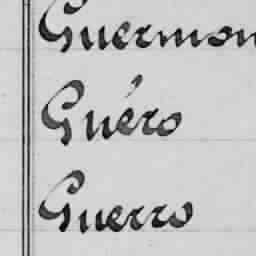 Guermon
Guéro
Guerro